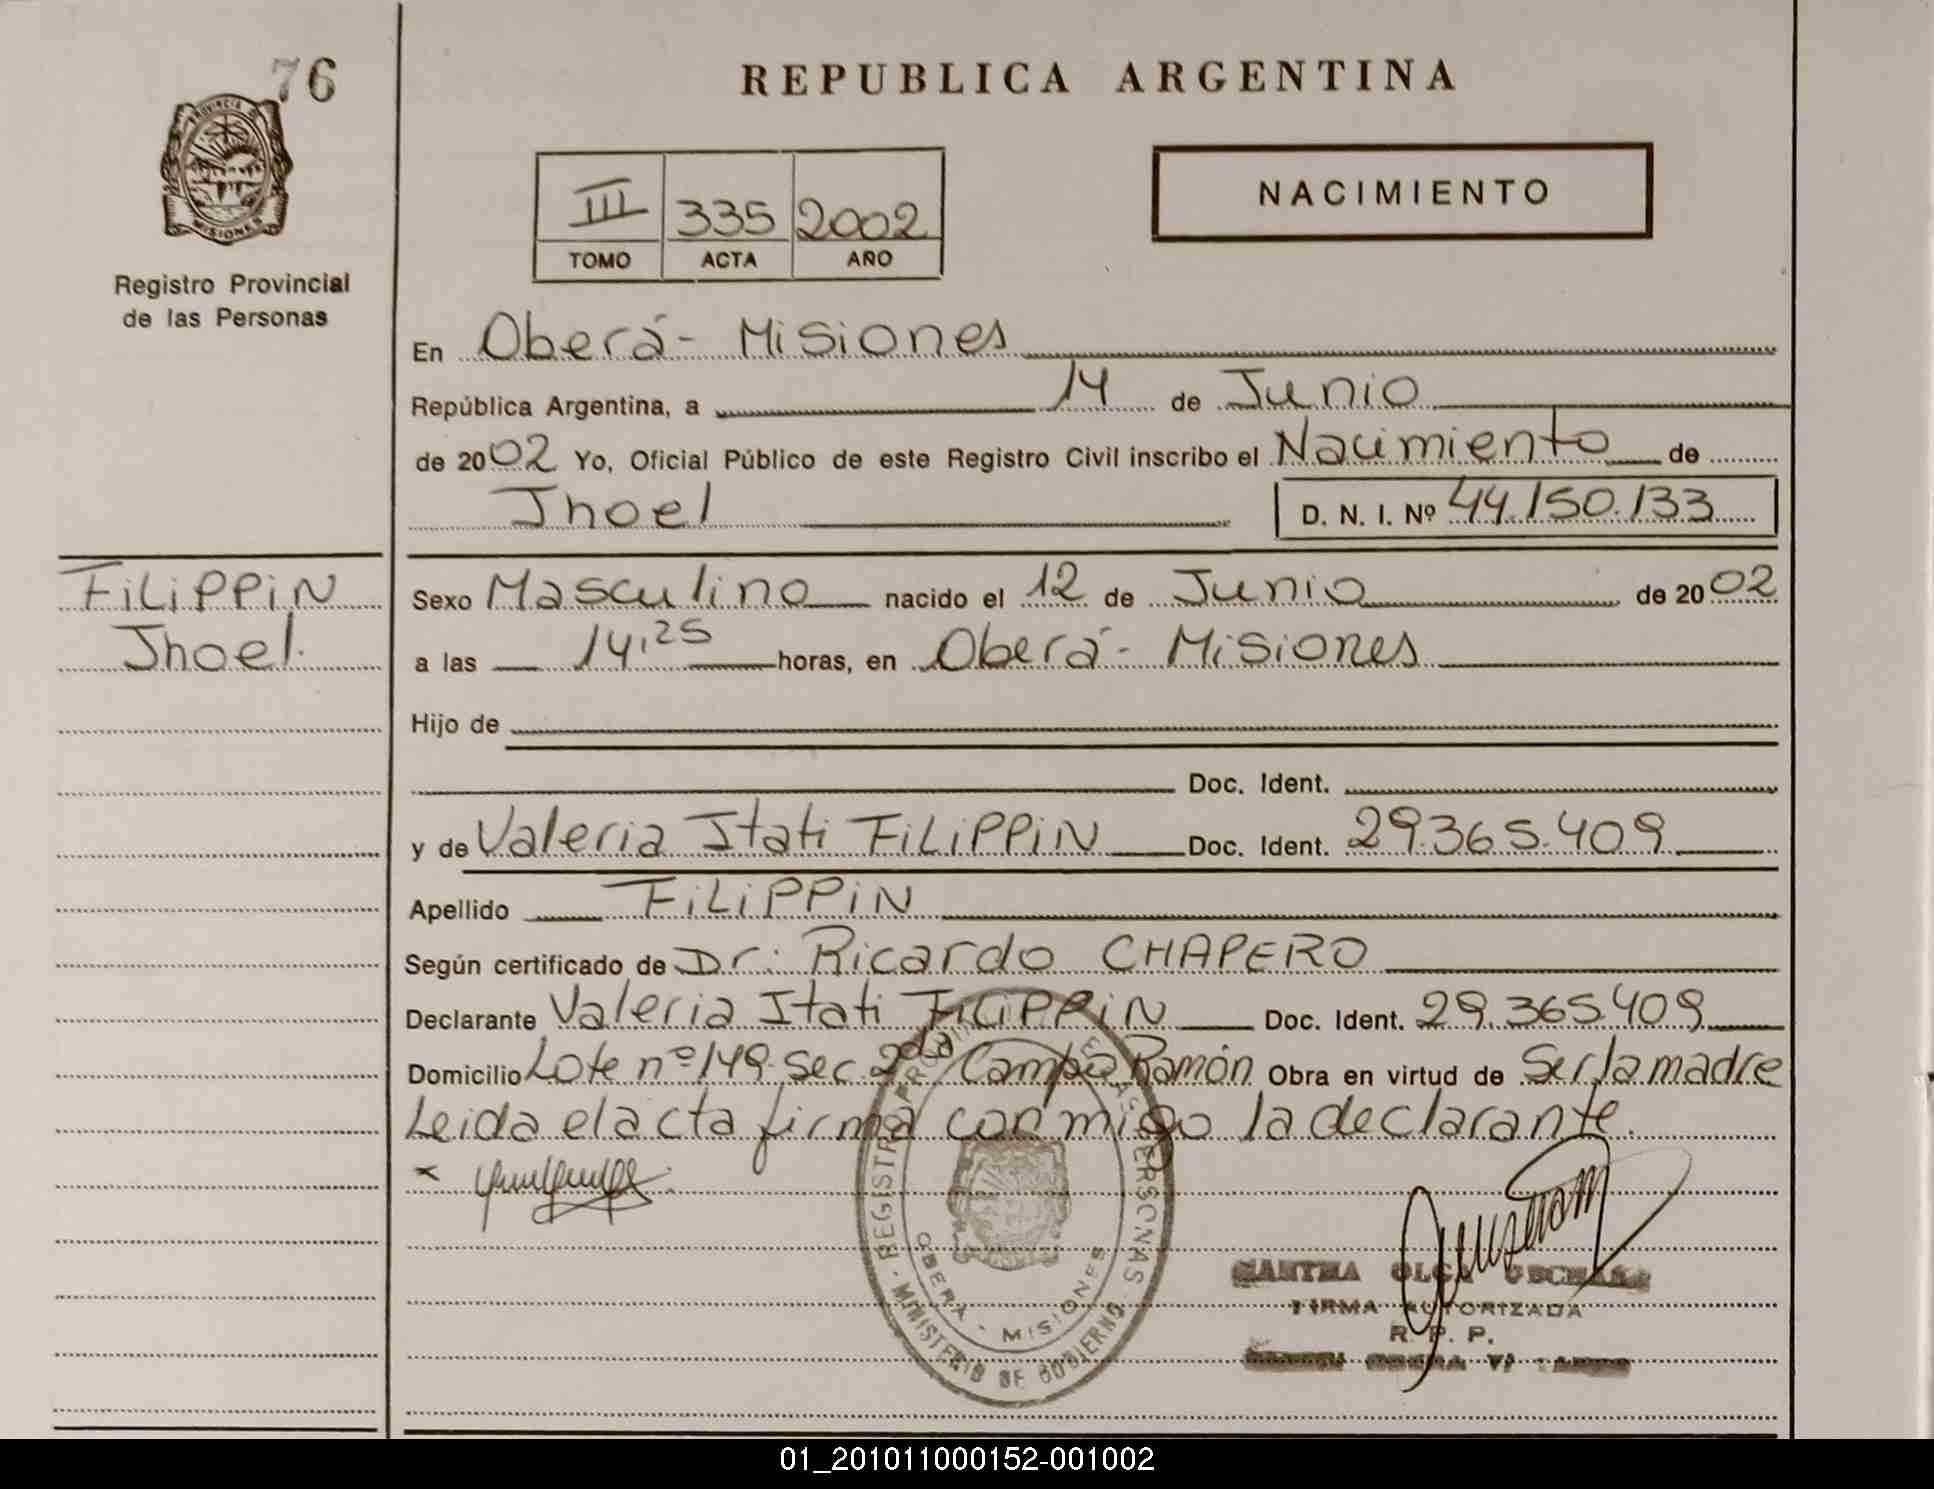 76
REPUBLICA ARGENTINA
PROVINCIA
MISIONES
Registro Provincial
de las Personas
III 335 2002
TOMO ACTA AÑO
NACIMIENTO
En Oberá - Misiones
República Argentina, a 14 de Junio
de 2002 Yo, Oficial Público de este Registro Civil inscribo el Nacimiento de
Jhoel D. N. I. Nº 44.150.133
FiLiPPiN
Jhoel.
Sexo Masculino nacido el 12 de Junio de 2002
a las 14,25 horas, en Oberá - Misiones
Hijo de
Doc. Ident.
y de Valeria Itati FiLiPPiN Doc. Ident. 29.365.409
Apellido FiLiPPiN
Según certificado de Dr. Ricardo CHAPERO
Declarante Valeria Itati FiLiPPiN Doc. Ident. 29.365.409
Domicilio Lote nº 149 Sec 2da Campo Ramón Obra en virtud de Ser la madre
Leida el acta firma conmigo la declarante.
x
REGISTRO PROVINCIAL DE LAS PERSONAS
OBERA - MISIONES
MINISTERIO DE GOBIERNO
OLGA
FIRMA AUTORIZADA
R. P. P.
OBERA
01_201011000152-001002